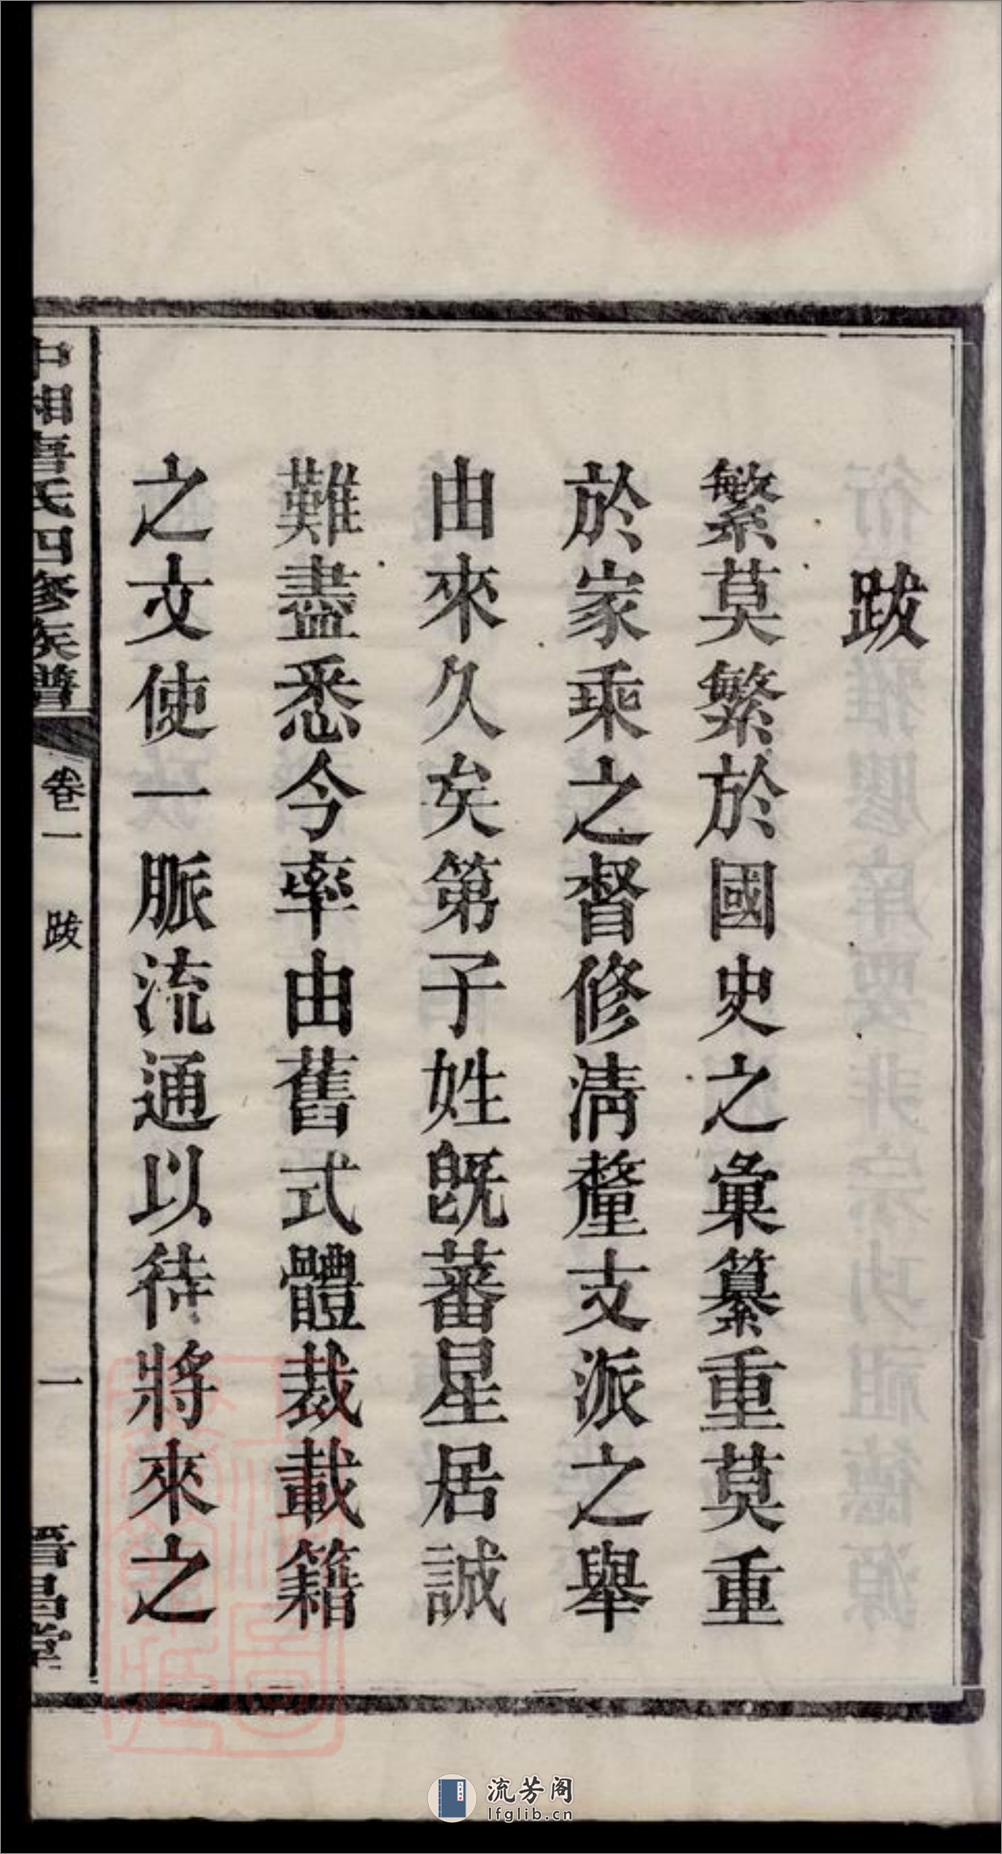 跋
繁莫繁於國史之彙纂重莫重
於家乘之督修清釐支派之舉
由來久矣第子姓旣蕃星居誠
難盡悉今率由舊式體裁載籍
之文使一脈流通以待將來之
中湘唐氏四修族譜
卷一
跋
一
晋昌堂
流芳阁
lfglib.cn